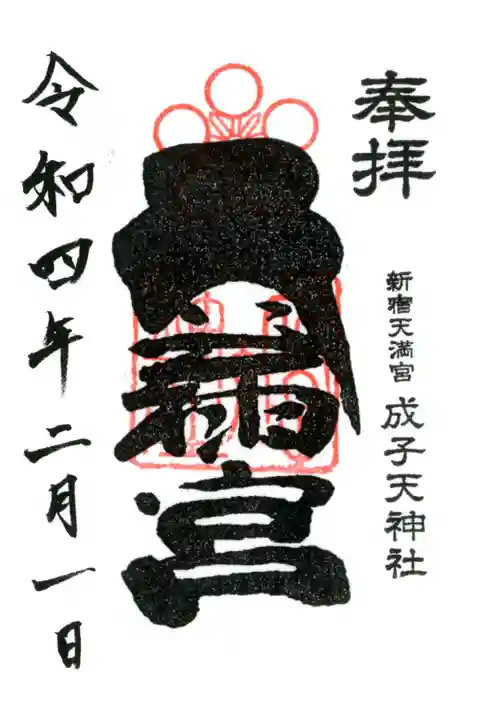 奉拝
新宿天満宮 成子天神社
天満宮
令和四年二月一日